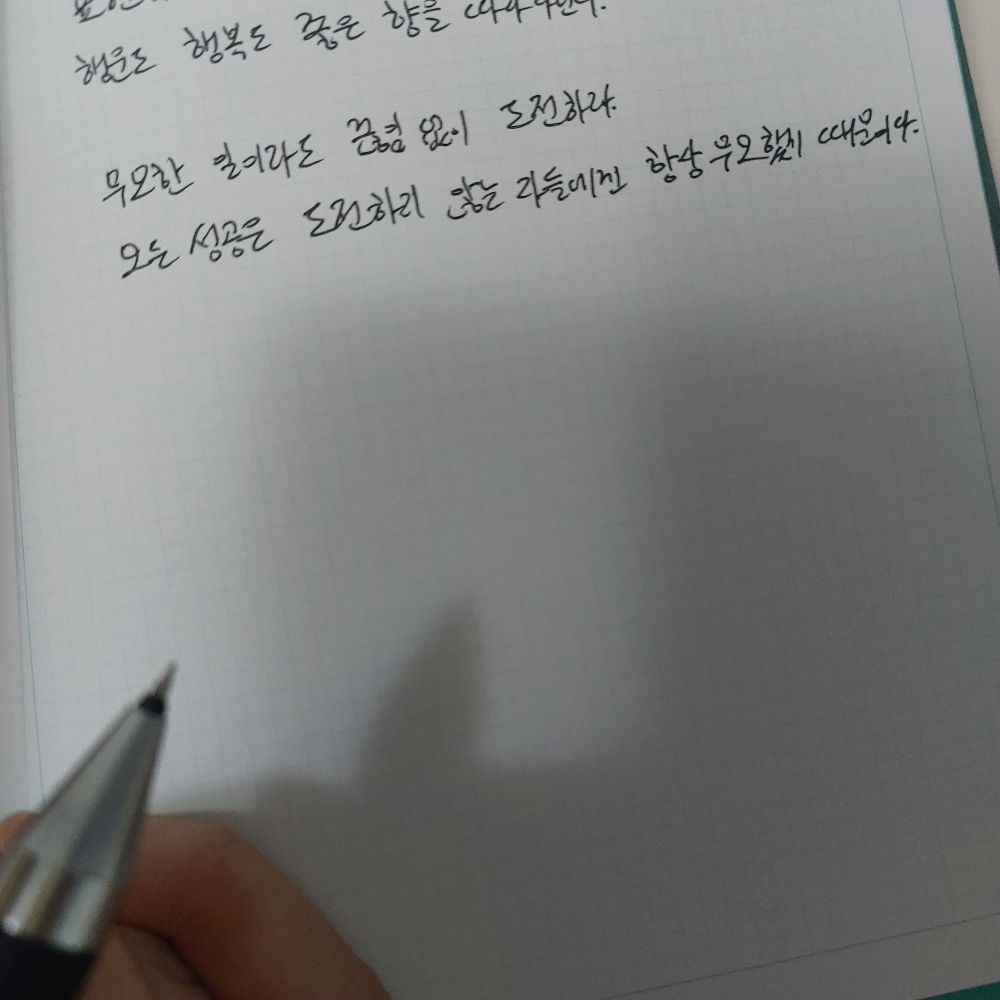 행운도 행복도 좋은 향을 따라다닌다.
무모한 일이라도 끊임 없이 도전하라.
모든 성공은 도전하지 않는 자들에겐 항상 무모했기 때문이다.